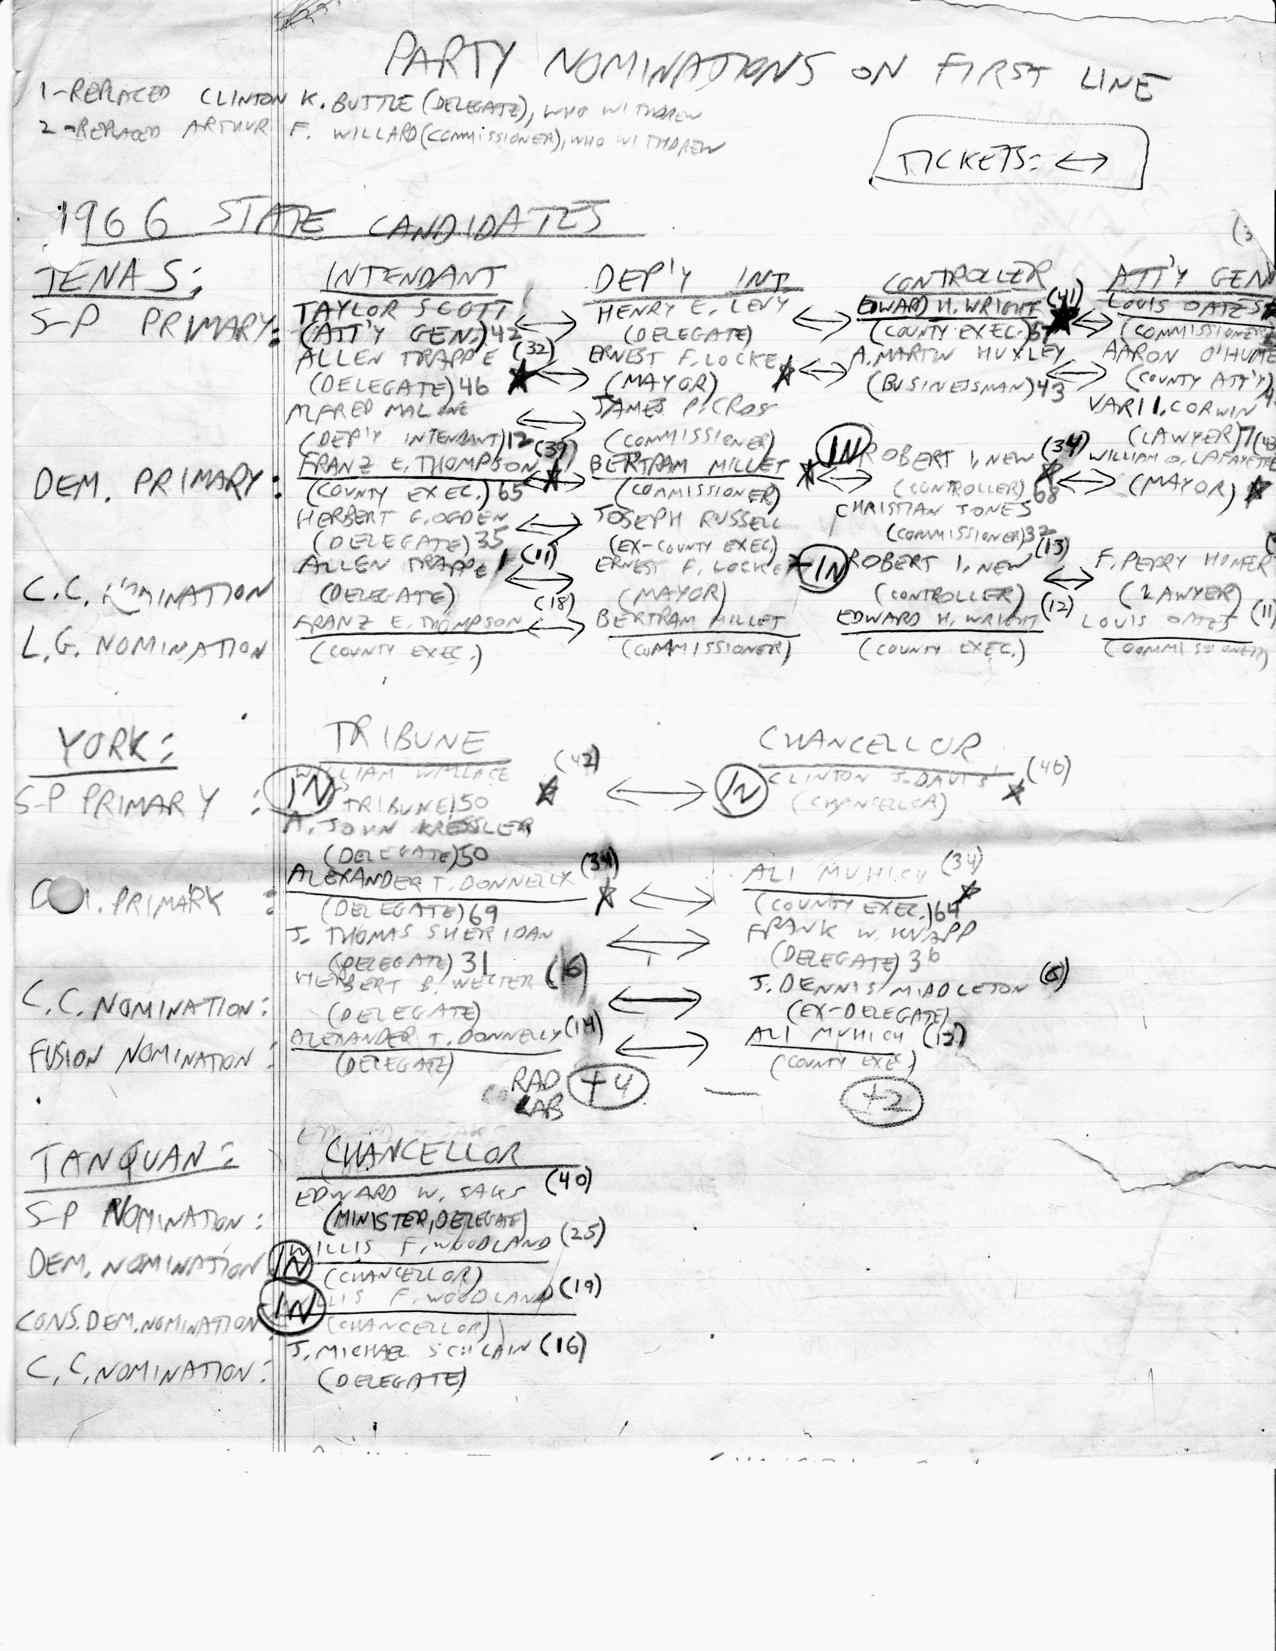 PARTY NOMINATIONS ON FIRST LINE
1-REPLACED CLINTON K. BUTTLE (DELEGATE), WHO WITHDREW
2-REPLACED ARTHUR F. WILLARD (COMMISSIONER), WHO WITHDREW
TICKETS: ↔
1966 STATE CANDIDATES
TENAS: INTENDANT DEP'Y INT. CONTROLLER ATT'Y GEN
S-P PRIMARY: TAYLOR SCOTT ↔ HENRY E. LEVY ↔ EDWARD H. WRIGHT (41) ★ ↔ LOUIS OATES
(ATT'Y GEN.) 42 (DELEGATE) (COUNTY EXEC.) (COMMISSIONER)
ALLEN TRAPPE (32) ★ ↔ ERNEST F. LOCKE ★ ↔ A. MARTIN HUXLEY ↔ AARON O'HUME
(DELEGATE) 46 (MAYOR) (BUSINESSMAN) 43 (COUNTY ATT'Y)
ALFRED MALONE ↔ JAMES P. CROSS CORWIN
(DEP'Y INTENDANT) 12 (COMMISSIONER) (LAWYER) 7
DEM. PRIMARY: FRANZ E. THOMPSON (39) ★ ↔ BERTRAM MILLET ★ ↔ IN ROBERT I. NEW (34) ★ ↔ WILLIAM O. LAFAYETTE
(COUNTY EXEC.) 65 (COMMISSIONER) (CONTROLLER) 68 (MAYOR) ★
HERBERT G. OGDEN ↔ JOSEPH RUSSELL CHRISTIAN JONES
(DELEGATE) 35 (EX-COUNTY EXEC) (COMMISSIONER) 32
C.C. NOMINATION ALLEN TRAPPE (11) ↔ ERNEST F. LOCKE IN ROBERT I. NEW (13) ↔ F. PERRY HOFFER
(DELEGATE) (MAYOR) (CONTROLLER) (LAWYER)
L.G. NOMINATION FRANZ E. THOMPSON (18) ↔ BERTRAM MILLET EDWARD H. WRIGHT (12) LOUIS OATES (11)
(COUNTY EXEC.) (COMMISSIONER) (COUNTY EXEC.) (COMMISSIONER)
YORK: TRIBUNE CHANCELLOR
S-P PRIMARY: IN WILLIAM WALLACE (42) ★ ↔ IN CLINTON J. DAVIS (46) ★
(TRIBUNE) 50 (CHANCELLOR)
A. JOHN KRESSLER
(DELEGATE) 50
PRIMARY: ALEXANDER T. DONNELLY (34) ★ ↔ ALI MUHICH (34) ★
(DELEGATE) 69 (COUNTY EXEC.) 64
J. THOMAS SHERIDAN ↔ FRANK W. KNAPP
(DELEGATE) 31 (DELEGATE) 36
C.C. NOMINATION: HERBERT B. WELTER (16) ↔ J. DENNIS MIDDLETON (6)
(DELEGATE) (EX-DELEGATE)
FUSION NOMINATION: ALEXANDER T. DONNELLY (14) ↔ ALI MUHICH (12)
(DELEGATE) (COUNTY EXEC.)
RAD LAB +4 — +2
TANQUAN: CHANCELLOR
S-P NOMINATION: EDWARD W. SAKS (40)
(MINISTER, DELEGATE)
DEM. NOMINATION IN WILLIS F. WOODLAND (25)
(CHANCELLOR)
CONS. DEM. NOMINATION: IN WILLIS F. WOODLAND (19)
(CHANCELLOR)
C.C. NOMINATION: J. MICHAEL SCHLAIN (16)
(DELEGATE)